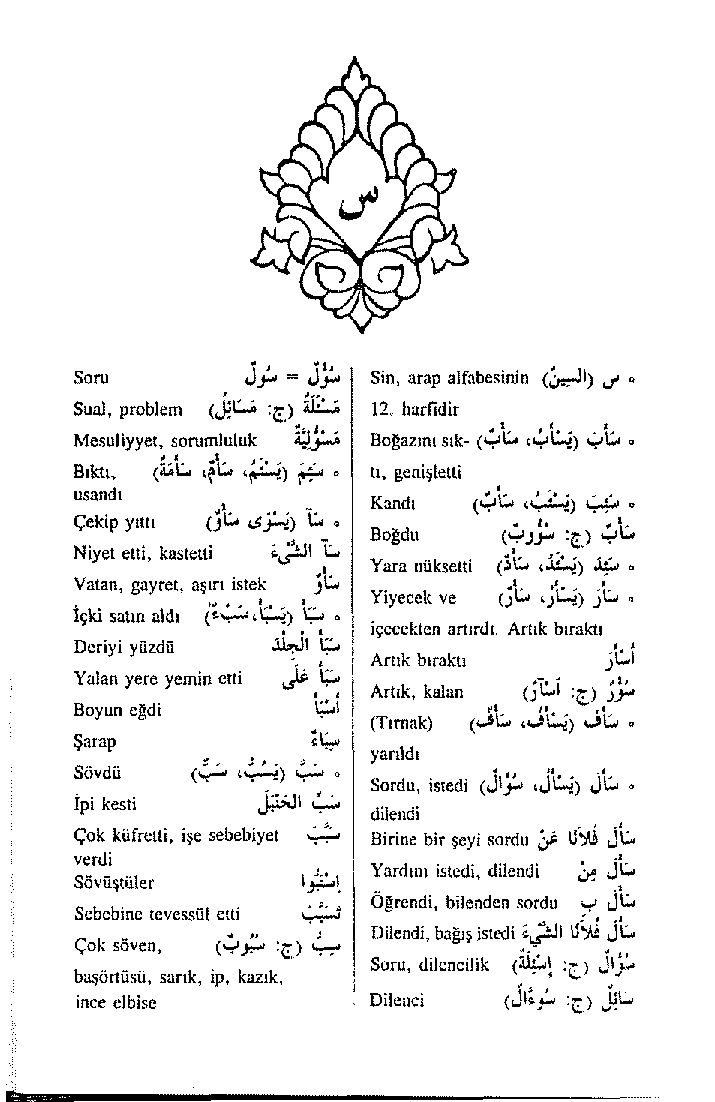 س
Sin, arap alfabesinin (السِّينُ) س ∘
12. harfidir
Boğazını sık- (سَأَبَ (يَسْأَبُ، سَأْبٌ ∘
tı, genişletti
Kandı (سَئِبَ (يَسْئَبُ، سَأَبٌ ∘
Boğdu (سَأْبٌ (ج: سُؤُوبٌ
Yara nüksetti (سَئِدَ (يَسْئَدُ، سَأَدٌ ∘
Yiyecek ve (سَأَرَ (يَسْأَرُ، سَأْرٌ ∘
içecekten artırdı. Artık bıraktı
Artık bıraktı أَسْأَرَ
Artık, kalan (سُؤْرٌ (ج: أَسْآرٌ
(Tırnak) (سَأَفَ (يَسْأَفُ، سَأْفٌ ∘
yarıldı
Sordu, istedi (سَأَلَ (يَسْأَلُ، سُؤَالٌ ∘
dilendi
Birine bir şeyi sordu سَأَلَ فُلاَنًا عَنْ
Yardım istedi, dilendi سَأَلَ مِنْ
Öğrendi, bilenden sordu سَأَلَ بِ
Dilendi, bağış istedi سَأَلَ فُلاَنًا الشَّيْءَ
Soru, dilencilik (سُؤَالٌ (ج: اَسْئِلَةٌ
Dilenci (سَائِلٌ (ج: سُوءَالٌ
Soru سُؤْلٌ = سُولٌ
Sual, problem (مَسْئَلَةٌ (ج: مَسَائِلُ
Mesuliyyet, sorumluluk مَسْؤُلِيَّةٌ
Bıktı, (سَئِمَ (يَسْئَمُ، سَأْمٌ، سَأْمَةٌ ∘
usandı
Çekip yırttı (سَآ (يَسْؤَى سَأْوٌ ∘
Niyet etti, kastetti سَآ الشَّيْءَ
Vatan, gayret, aşırı istek سَأْوٌ
İçki satın aldı (سَبَأَ (يَسْبَأُ، سَبْءٌ ∘
Deriyi yüzdü سَبَأَ الْجِلْدَ
Yalan yere yemin etti سَبَأَ عَلَى
Boyun eğdi أَسْبَأَ
Şarap سِبَاءٌ
Sövdü (سَبَّ (يَسُبُّ، سَبٌّ ∘
İpi kesti سَبَّ الْحَبْلَ
Çok küfretti, işe sebebiyet سَبَّبَ
verdi
Sövüştüler اِسْتَبُّوا
Sebebine tevessül etti تَسَبَّبَ
Çok söven, (سِبٌّ (ج: سُبُوبٌ
başörtüsü, sarık, ip, kazık,
ince elbise